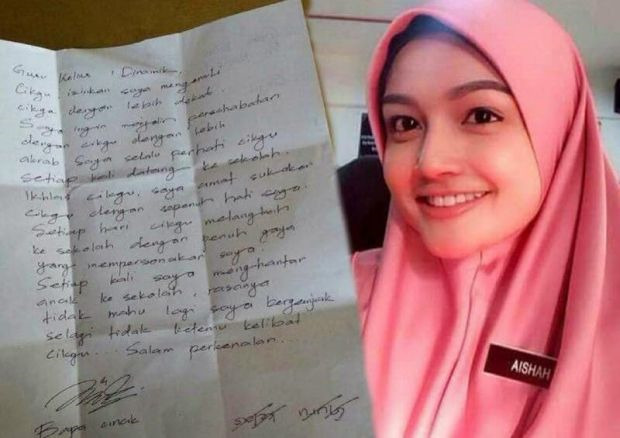 Guru Kelas : Dinamik.
Cikgu izinkan saya mengenali
cikgu dengan lebih dekat.
Saya ingin menjalin persahabatan
dengan cikgu dengan lebih
akrab. Saya selalu perhati cikgu
setiap kali datang ke sekolah.
Ikhlas cikgu, saya amat sukakan
cikgu dengan sepenuh hati saya.
Setiap hari cikgu melangkah
ke sekolah dengan penuh gaya
yang mempersonakan saya.
Setiap kali saya menghantar
anak ke sekolah, rasanya
tidak mahu lagi saya berganjak
selagi tidak ketemu kelibat
cikgu... Salam perkenalan...
Bapa
AISHAH